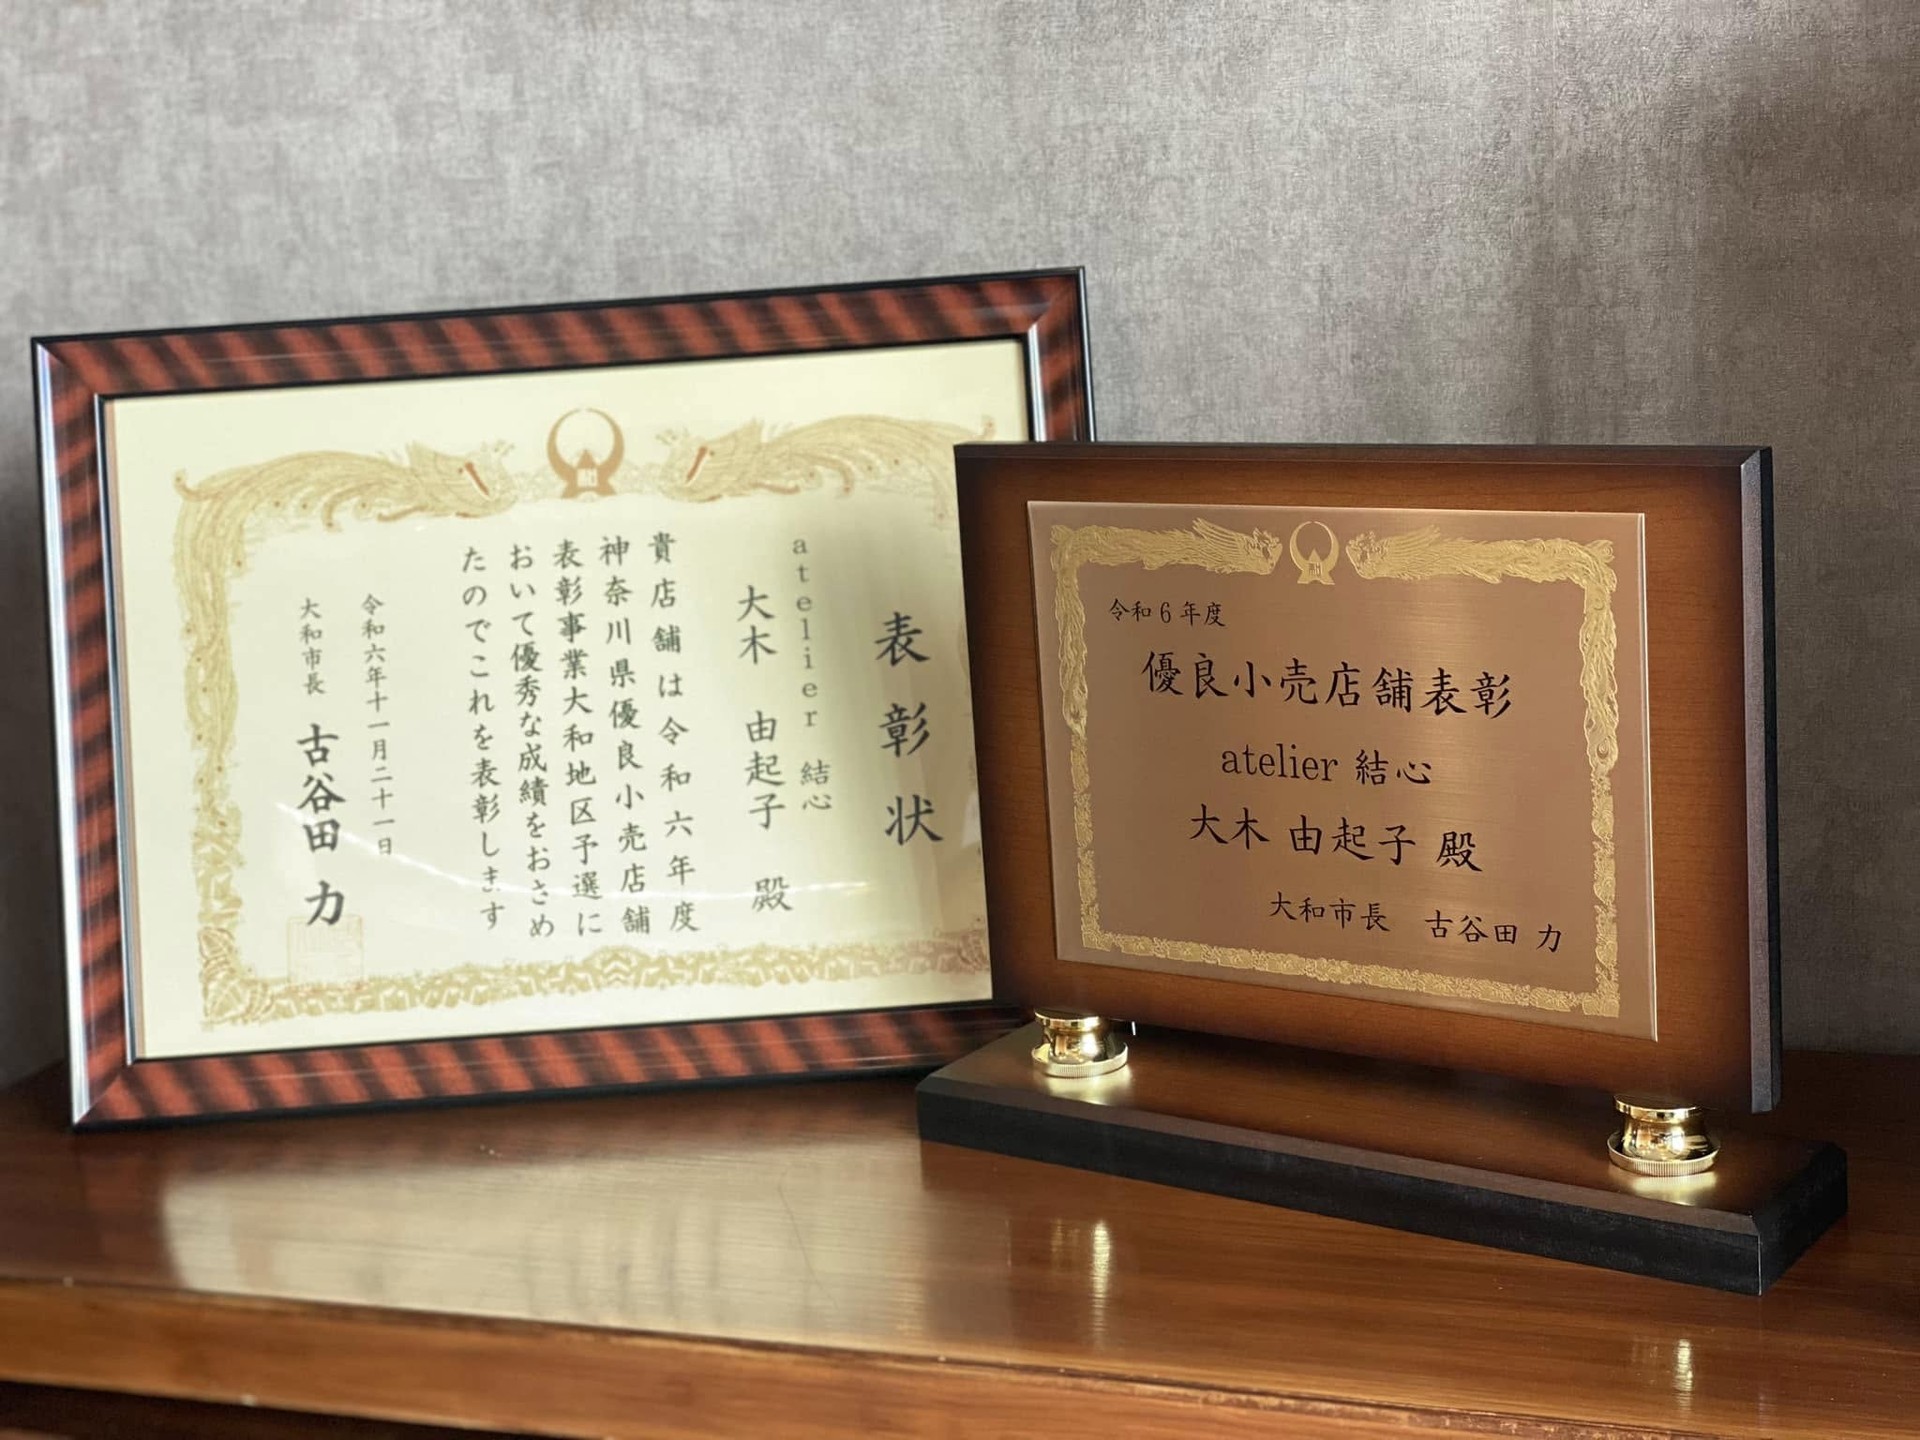 表彰状
atelier 結心
大木 由起子 殿
貴店舗は令和六年度
神奈川県優良小売店舗
表彰事業大和地区予選に
おいて優秀な成績をおさめ
たのでこれを表彰します
令和六年十一月二十一日
大和市長 古谷田 力
令和6年度
優良小売店舗表彰
atelier 結心
大木 由起子 殿
大和市長 古谷田 力